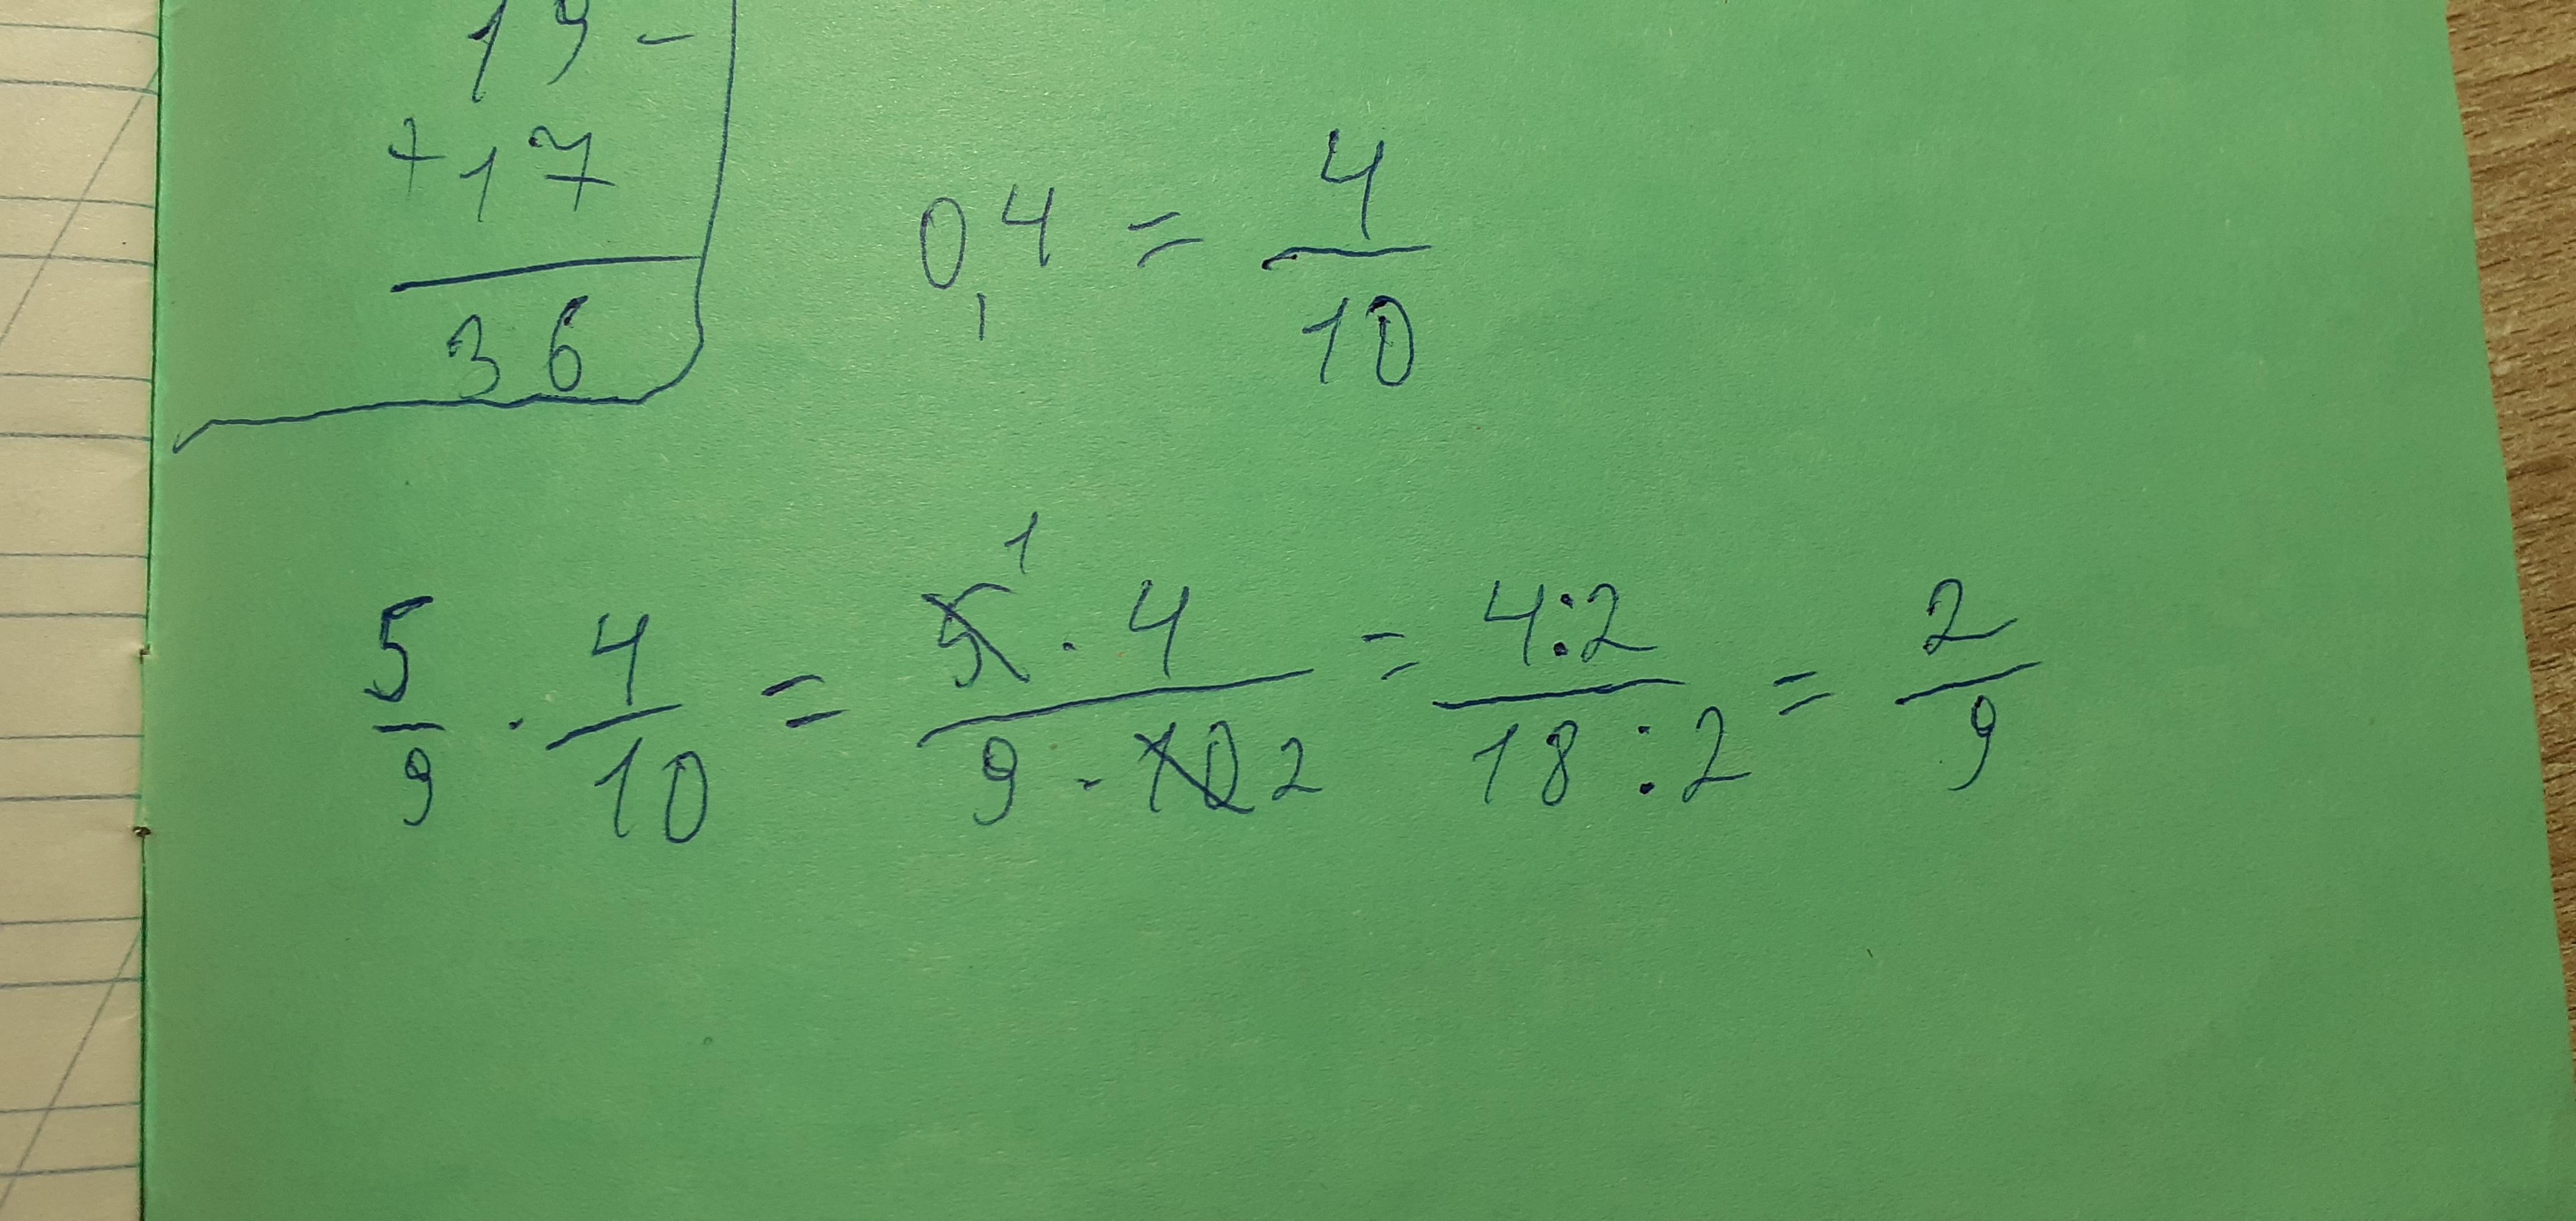 19 -
+17
36
0,4 = 4/10
5/9 · 4/10 = 5 1 · 4 / 9 · 10 2 = 4:2 / 18:2 = 2/9